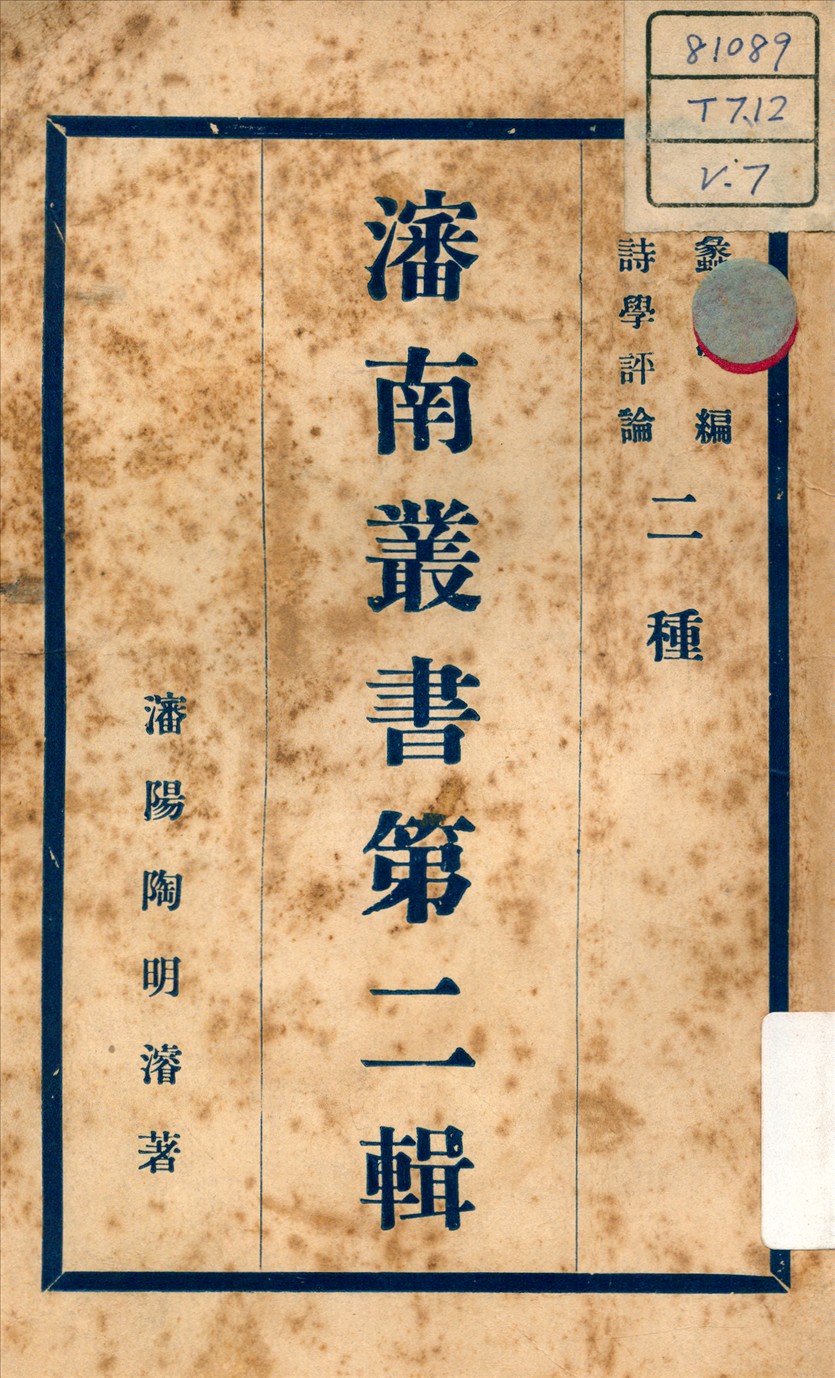 81089
T 7.12
V.7
蠡 編
詩學評論
二種
瀋南叢書第二輯
瀋陽陶明濬著